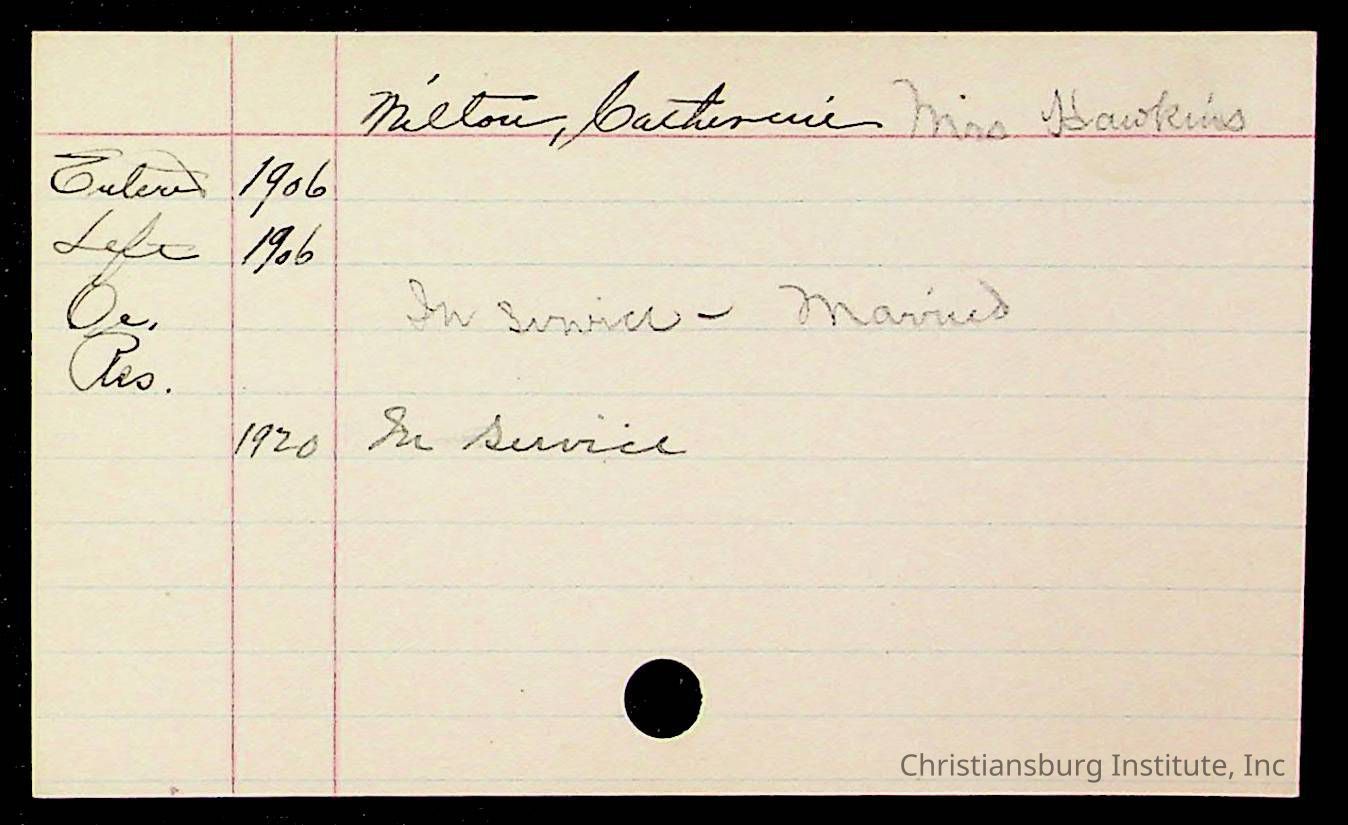 Milton, Catherine Mrs Hawkins
Entered 1906
Left 1906
Oc. In service - Married
Res.
1920 In service
Christiansburg Institute, Inc